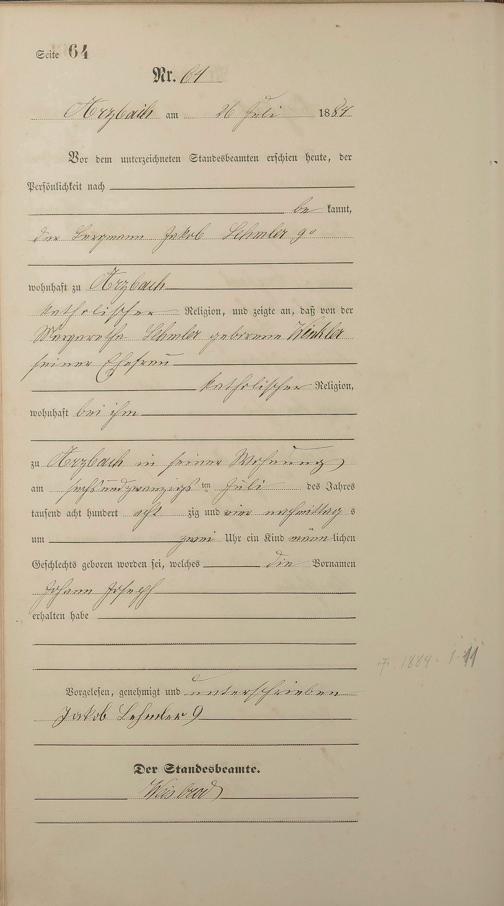 Seite 64
Nr. 61
Arzbach am 26 Juli 1884
Vor dem unterzeichneten Standesbeamten erschien heute, der
Persönlichkeit nach
be kannt,
der Bergmann Jakob
wohnhaft zu Arzbach
katholischer Religion, und zeigte an, daß von der
Margaretha geborene Winkler
seiner Ehefrau
katholischer Religion,
wohnhaft bei ihm
zu Arzbach in seiner Wohnung
am sechsundzwanzigs ten Juli des Jahres
tausend acht hundert acht zig und vier nachmittag s
um zwei Uhr ein Kind männ lichen
Geschlechts geboren worden sei, welches die Vornamen
Johann Joseph
erhalten habe
Vorgelesen, genehmigt und unterschrieben
Jakob Lehmler 9
Der Standesbeamte.
Weisbrod